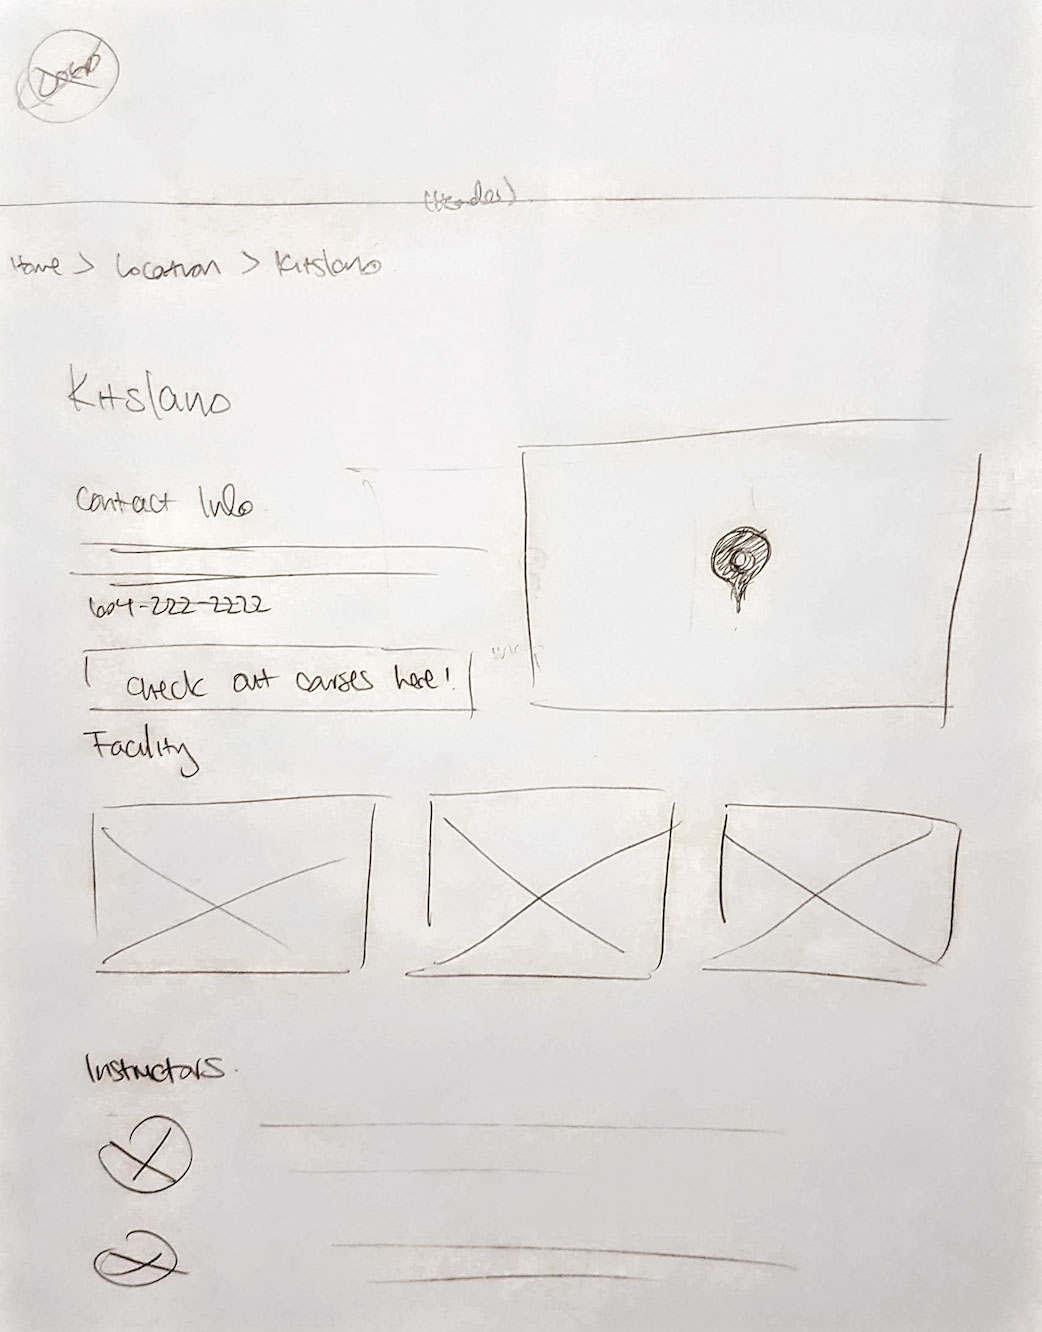 LOGO
(Header)
Home > Location > Kitslano
Kitslano
Contact Info
604-222-2222
Check out courses here!
Facility
Instructors